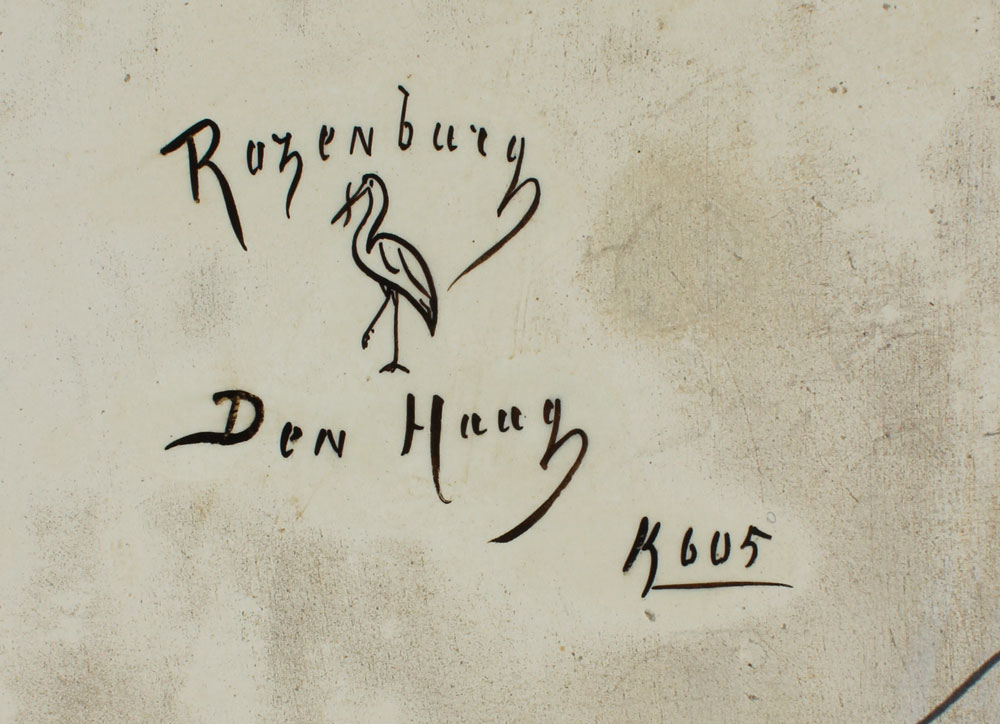 Rozenburg
Den Haag
K605